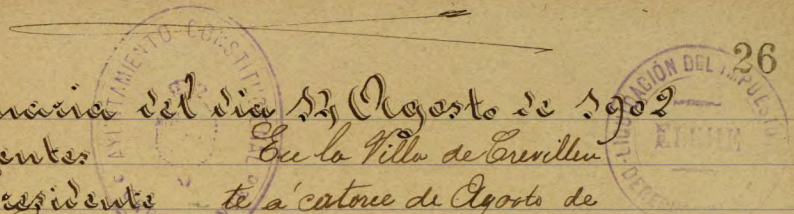 26
AYUNTAMIENTO CONSTITUCIONAL
LIQUIDACIÓN DEL IMPUESTO
ELCHE
naria del dia 14 Agosto de 1902
entes En la Villa de Crevillen
residente te á catorce de Agosto de